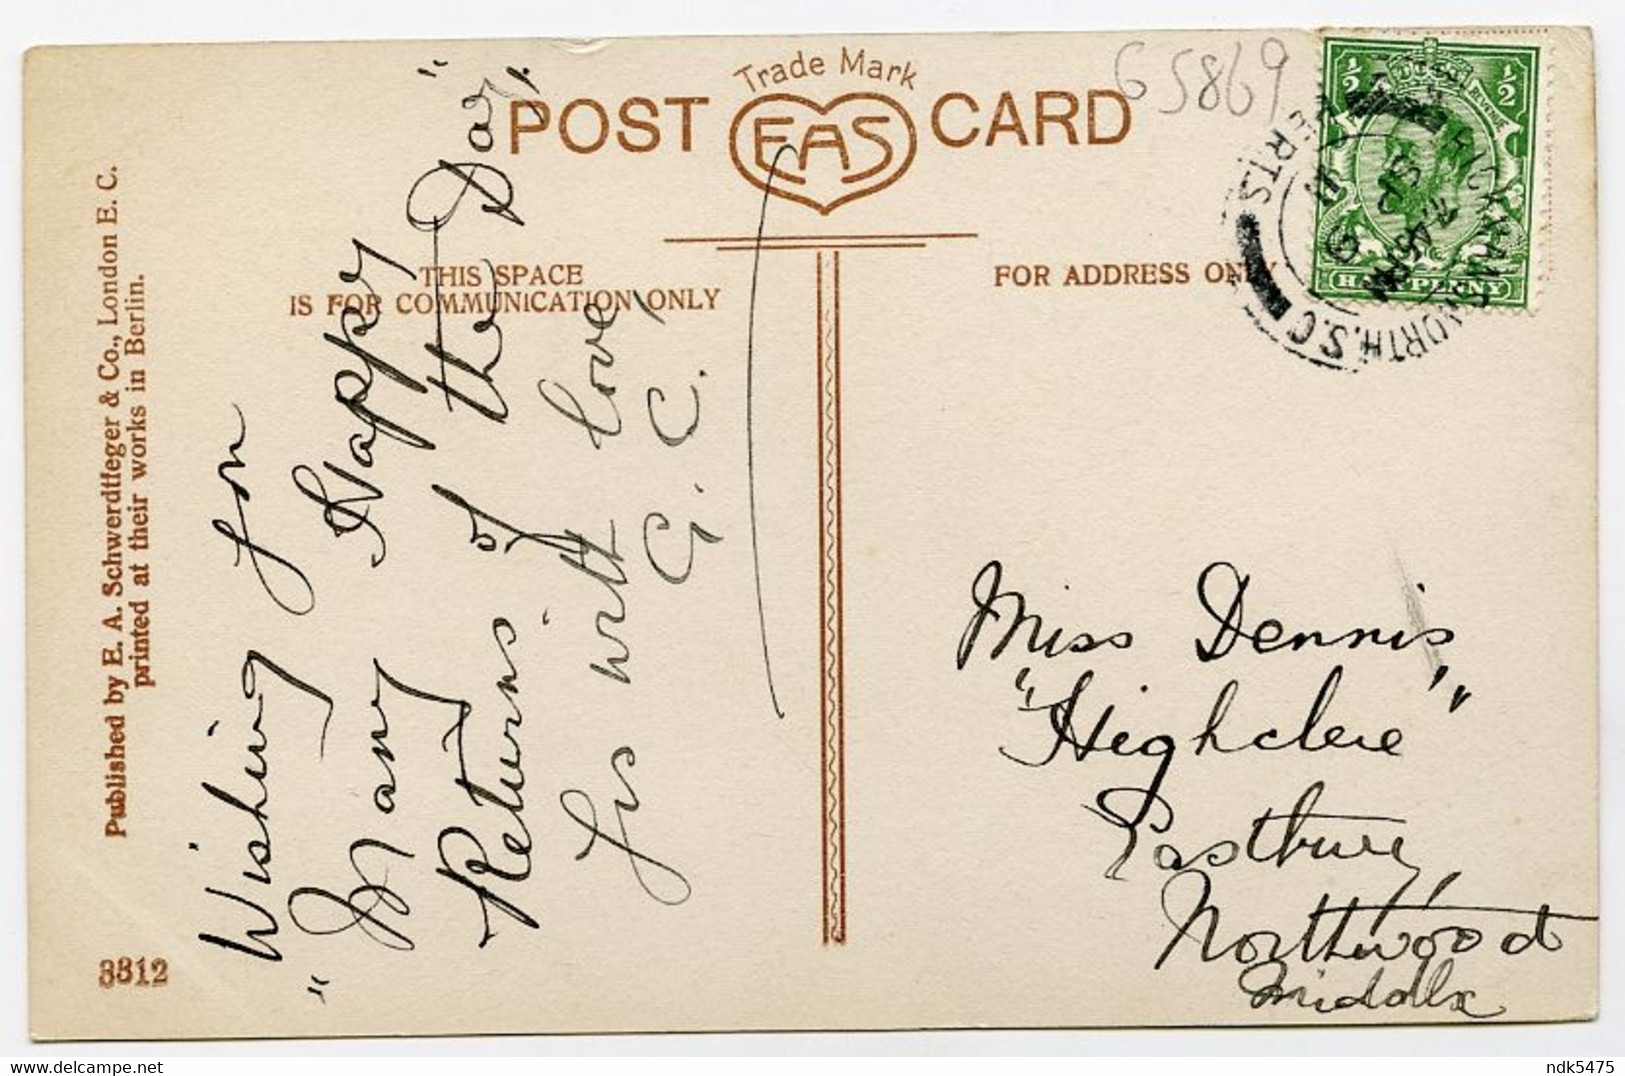 Trade Mark
POST CARD
EAS
G5869
THIS SPACE
IS FOR COMMUNICATION ONLY
FOR ADDRESS ONLY
Published by E. A. Schwerdtfeger & Co., London E. C.
printed at their works in Berlin.
3312
Wishing you
"Many Happy
Returns of the Day",
with love,
G. C.
Miss Dennis,
"Highclere"
Eastbury,
Northwood
Middlx
½ ½
HALFPENNY
RICKMANSWORTH. S.O.
HERTS
7.45PM
SP
11
delcampe.net
ndk5475